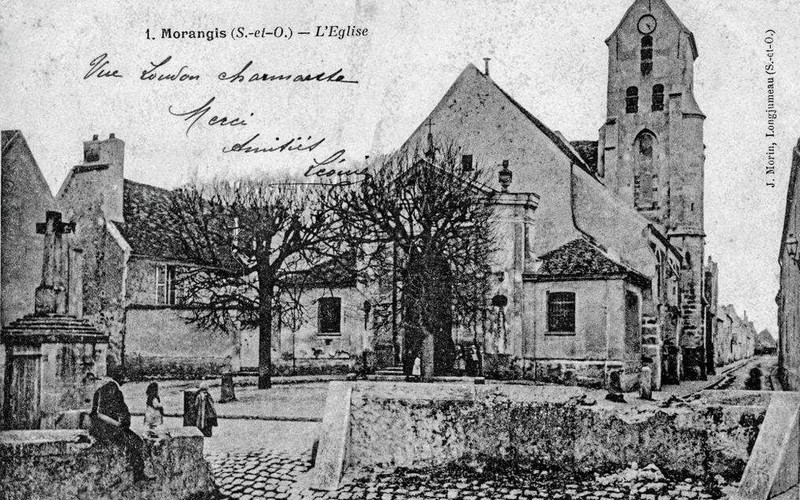 1. Morangis (S.-et-O.) — L'Eglise
Vue London charmante
Merci
Amitiés
Léonie
J. Morin, Longjumeau (S.-et-O.)